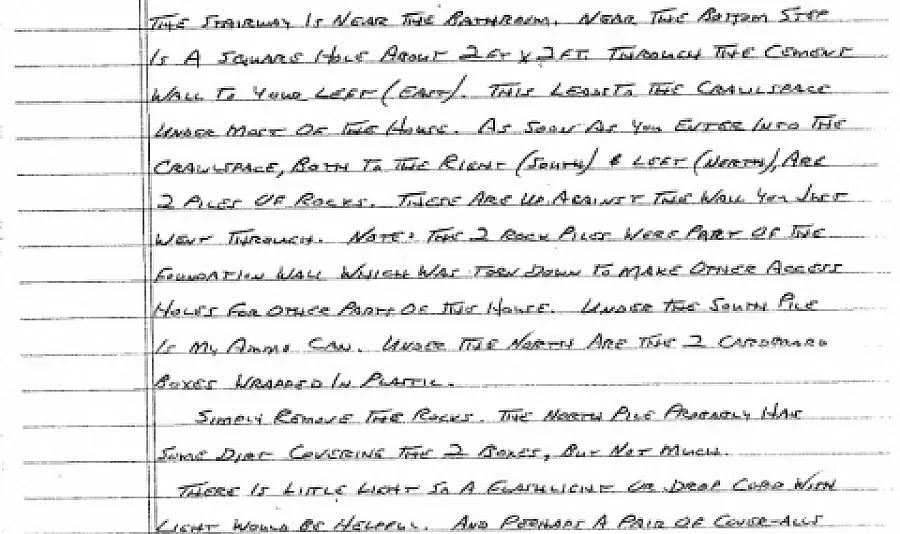 THE STAIRWAY IS NEAR THE BATHROOM. NEAR THE BOTTOM STEP
IS A SQUARE HOLE ABOUT 2 FT X 2 FT. THROUGH THE CEMENT
WALL TO YOUR LEFT (EAST). THIS LEADS TO THE CRAWLSPACE
UNDER MOST OF THE HOUSE. AS SOON AS YOU ENTER INTO THE
CRAWLSPACE, BOTH TO THE RIGHT (SOUTH) & LEFT (NORTH), ARE
2 PILES OF ROCKS. THESE ARE UP AGAINST THE WALL YOU JUST
WENT THROUGH. NOTE: THE 2 ROCK PILES WERE PART OF THE
FOUNDATION WALL WHICH WAS TORN DOWN TO MAKE OTHER ACCESS
HOLES FOR OTHER PARTS OF THE HOUSE. UNDER THE SOUTH PILE
IS MY AMMO CAN. UNDER THE NORTH ARE THE 2 CARDBOARD
BOXES WRAPPED IN PLASTIC.
SIMPLY REMOVE THE ROCKS. THE NORTH PILE PROBABLY HAS
SOME DIRT COVERING THE 2 BOXES, BUT NOT MUCH.
THERE IS LITTLE LIGHT SO A FLASHLIGHT OR DROP CORD WITH
LIGHT WOULD BE HELPFUL. AND PERHAPS A PAIR OF COVER-ALLS